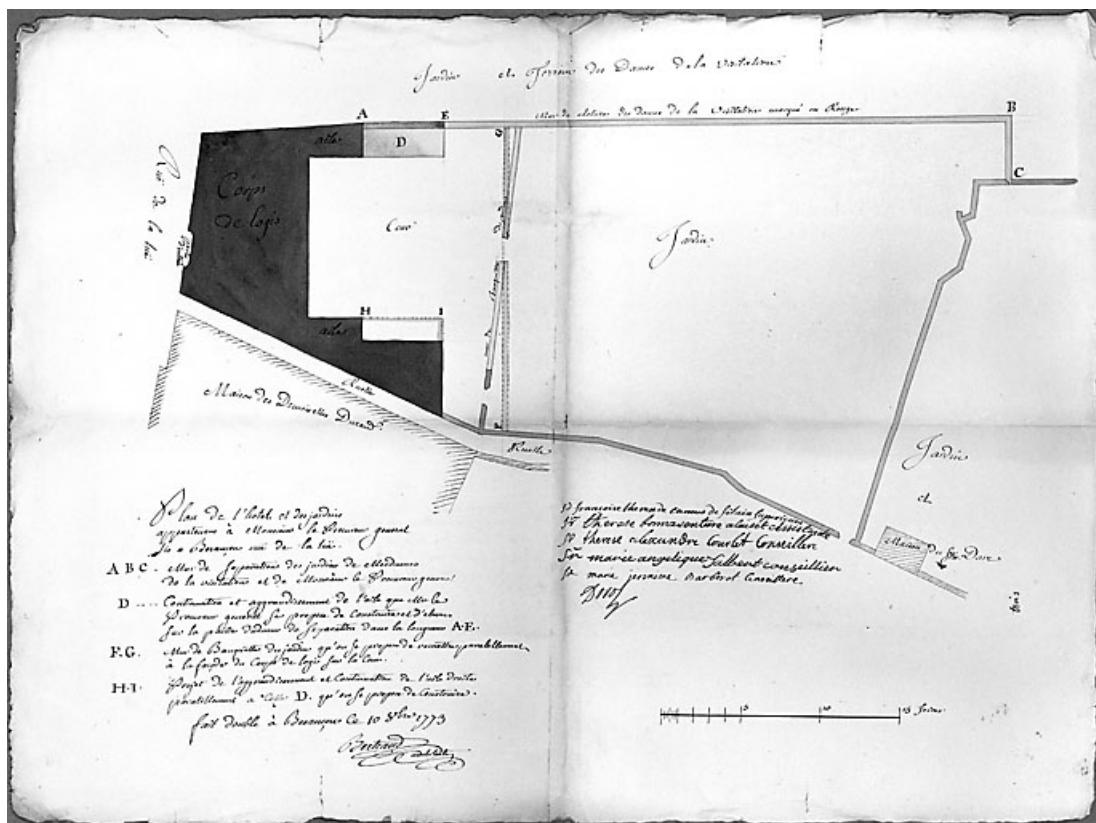 Jardin et Terrein des Dames de la visitation
Mur de cloture des dames de la Visitation marqué en Rouge
A
E
B
C
D
G
aile
Corps
de logis
Rue de la
Cour
Jardin
H
I
aile
F
Ruelle
Maison des Demoiselles Durand
Ruelle
Jardin
et
Maison du Sr. Dare
Plan de l'hotel et des jardins
appartenans à Monsieur le Procureur general
à Besançon rue de la
A B C . Mur de separation des jardins de Mesdames
de la visitation et de Monsieur le Procureur general
D .... Continuation et aggrandissement de l'aile que Mr le
Procureur general se propose de Construire et d'elever
sur la partie du mur de separation dans la longueur A.E.
F.G. Mur de Banquette des jardin qu'on se propose de remettre parallellement
à la façade du Corps de logis sur la Cour.
H-I. Projet de l'aggrandissement et Continuation de l'aile droite
parallellement a Celle D. qu'on se propose de Construire.
fait double à Besançon Ce 10 8bre 1773
Bertrand
sr francoise therese de camus de filain superieure
sr therese bonnaventure assistante
sr therese alexandre Courlet Conseillere
sr marie angelique Jalbert conseillere
sr marie Conseillere
5 10 15 Toises